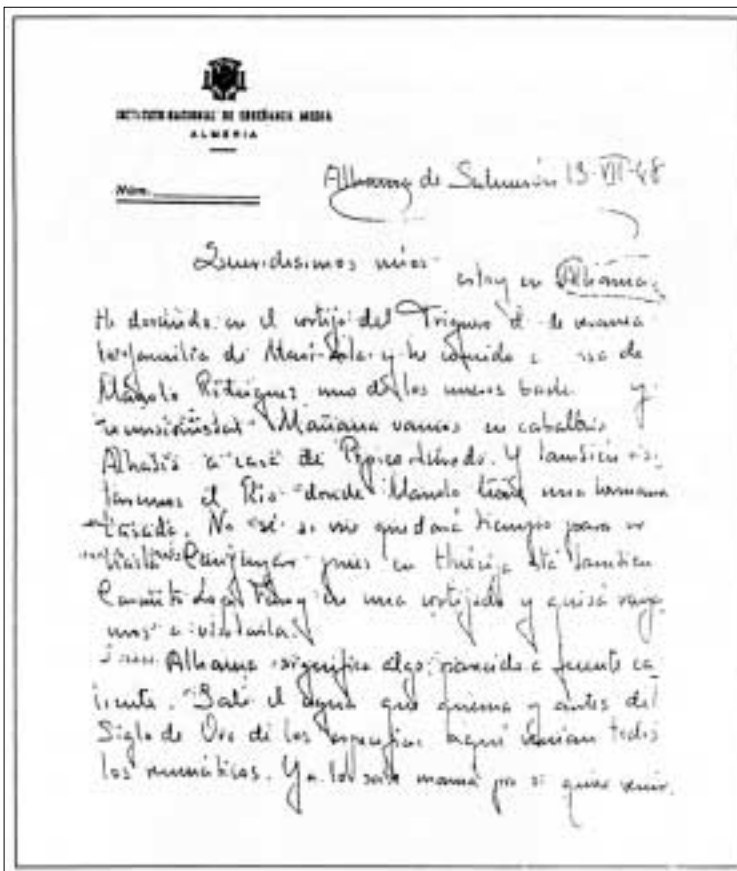 INSTITUTO NACIONAL DE ENSEÑANZA MEDIA
ALMERIA
Núm.
Alhama de Salmerón 13-VII-48
Queridisimos míos
estoy en Alhama,
He dormido en el cortijo del Triguero de verano
familia de y he comido a de
Manolo Rodríguez uno de los nuevos y
Mañana vamos en caballos
a casa de Y también
el Rio donde Manolo tiene una hermana
casada. No sé si me quedará tiempo para ir
hasta Canjayar pues en Huécija está también
Lopez en una cortijada y quizá vaya
mos a visitarla.
Alhama significa algo parecido a fuente ca
liente. Sale el agua que quema y antes del
Siglo de Oro de los aquí venían todos
los reumáticos. Ya lo sabe mamá por si quiere venir.